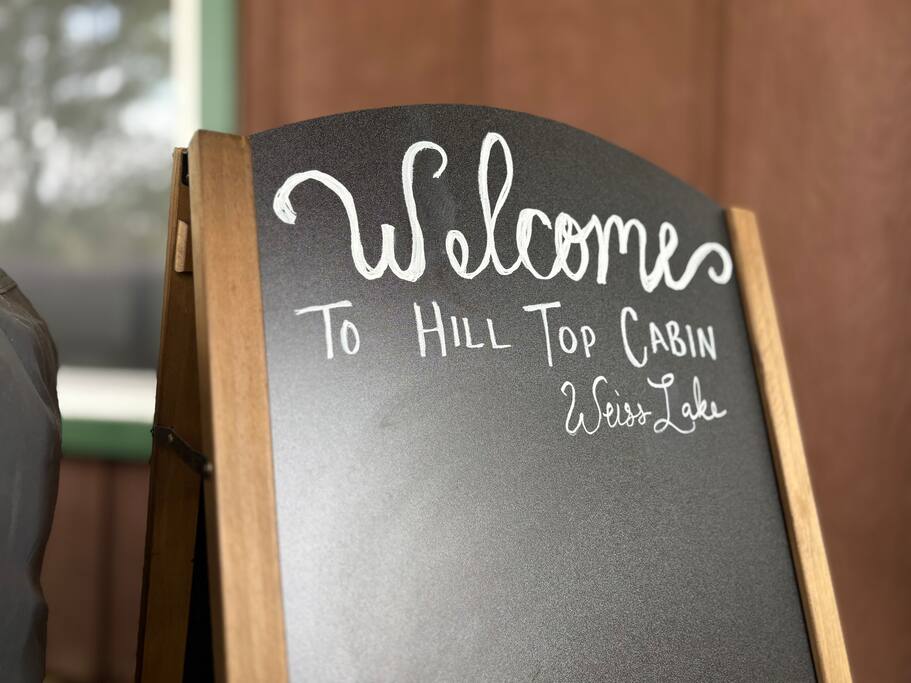 Welcome
To Hill Top Cabin
Weiss Lake